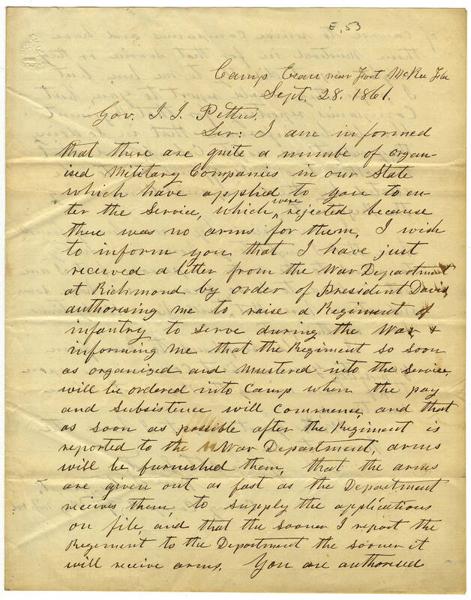 E, 53
Camp near Fort McRee Fla
Sept, 28. 1861.
Gov. J. J. Pettus.
Sir: I am informed
that there are quite a number of organ-
ised Military Companies in our State
which have applied to you to en-
ter the Service, which were rejected because
there was no arms for them, I wish
to inform you that I have just
received a letter from the War Department
at Richmond by order of President Davis
authorising me to raise a Regiment of
infantry to serve during the War, &
informing me that the Regiment so soon
as organized and mustered into the service
will be ordered into Camp when the pay
and subsistence will commence, and that
as soon as possible after the Regiment is
reported to the War Department, arms
will be furnished them, that the arms
are given out as fast as the Department
receives them to supply the applications
on file, and that the sooner I report the
Regiment to the Department the sooner it
will receive arms. You are authorised